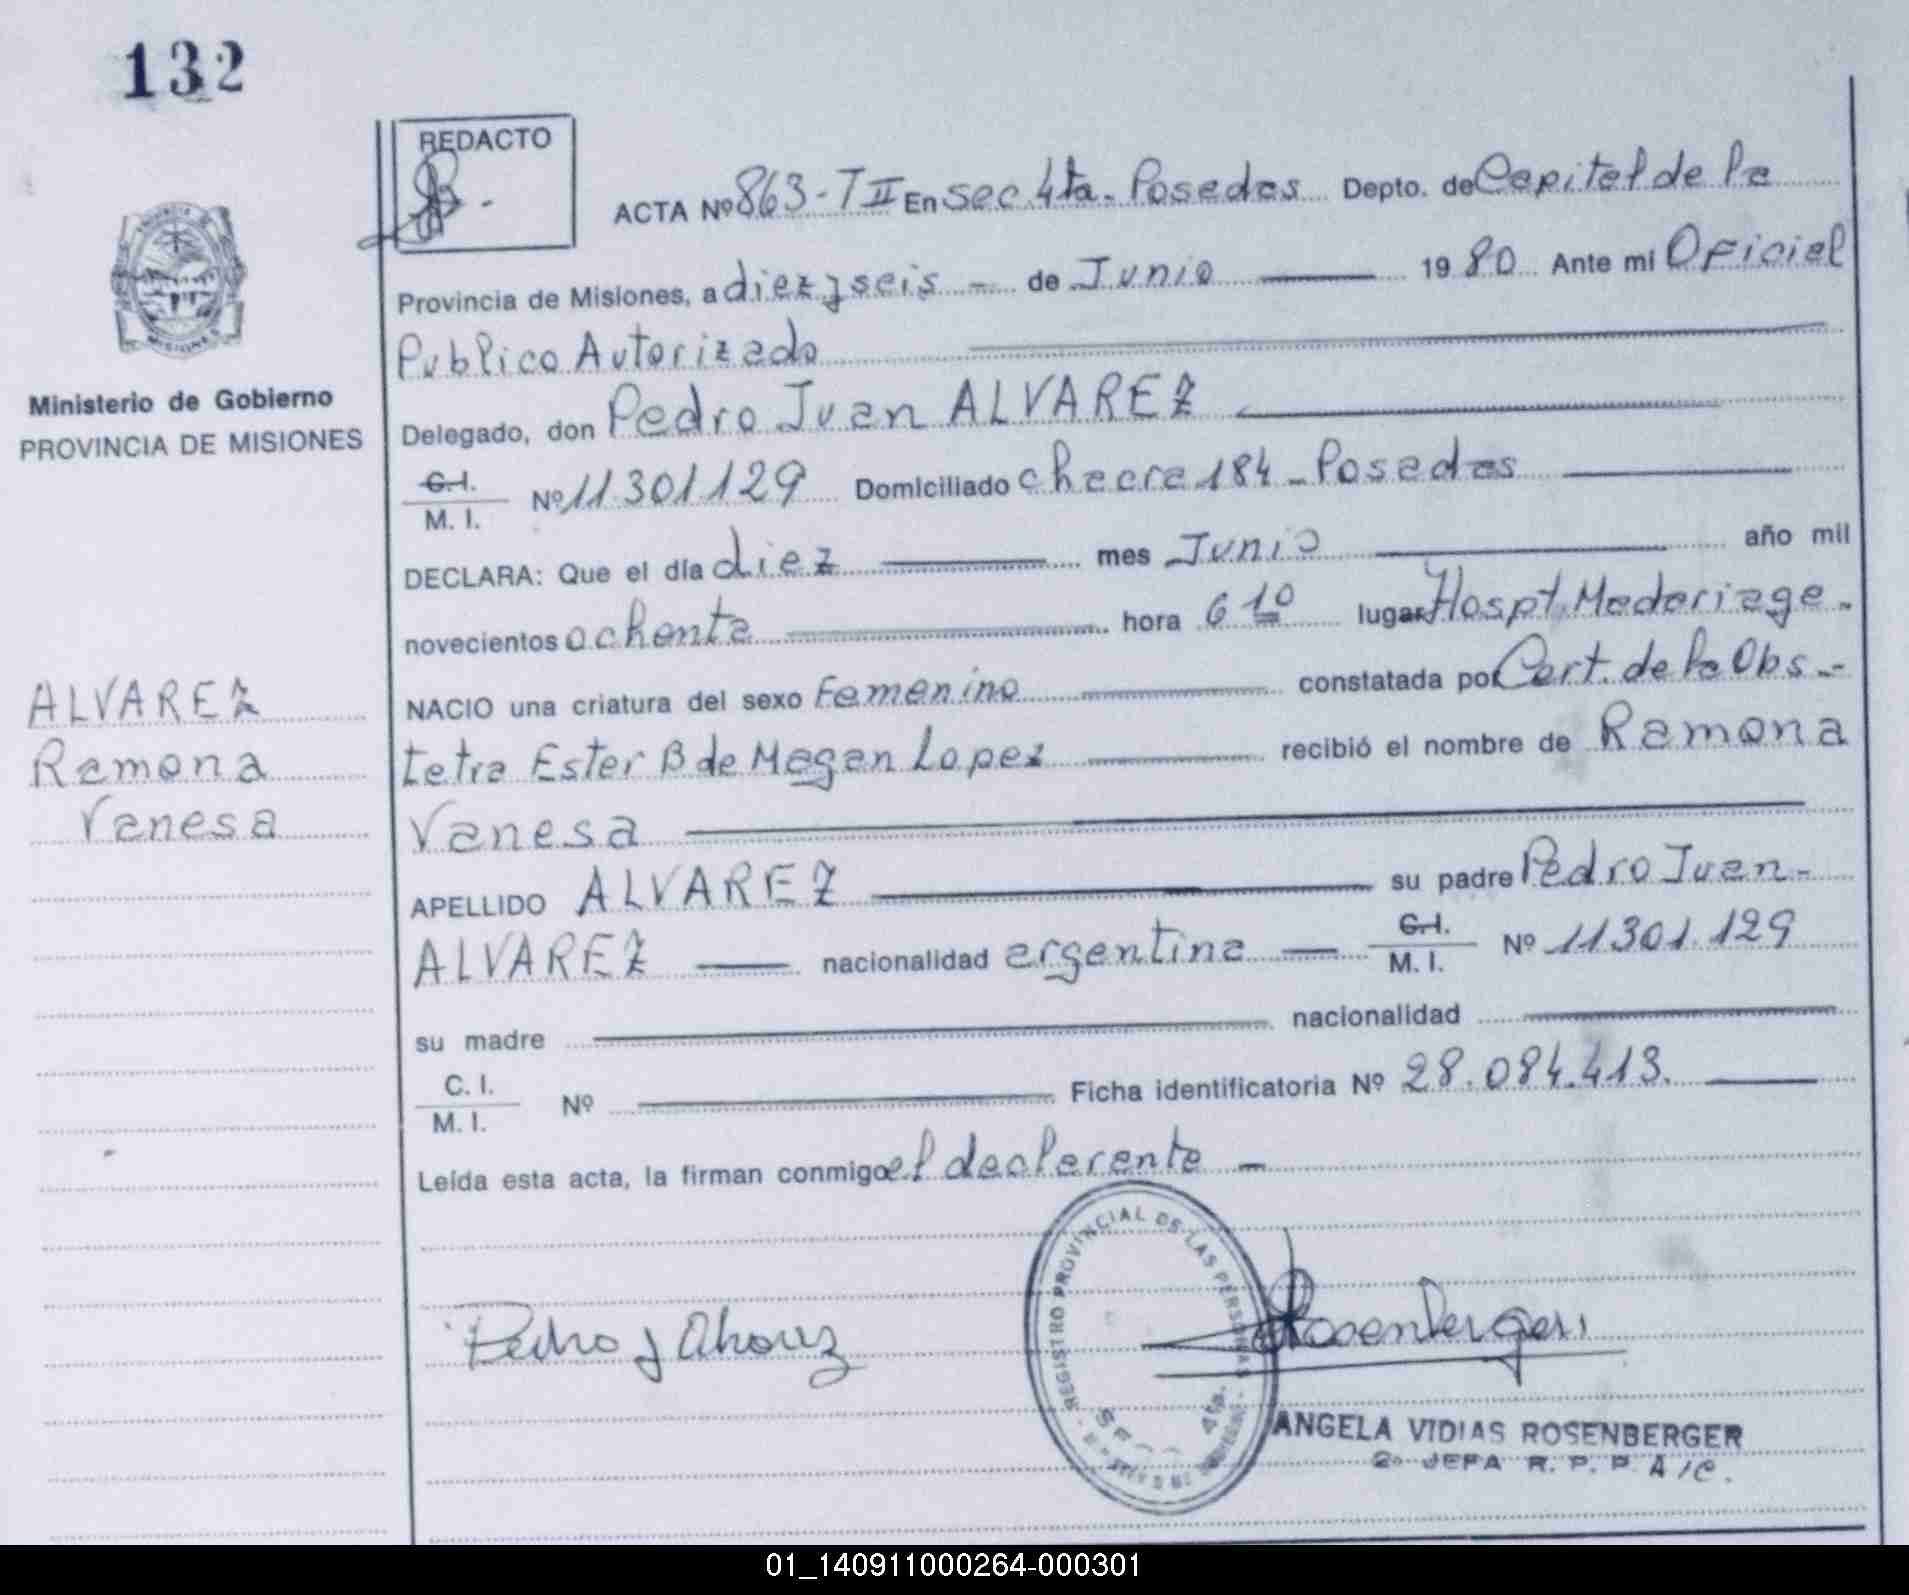 132
REDACTO
ACTA Nº 863-T II En sec 4ta. Posadas Depto. de Capital de la
Provincia de Misiones, a diez y seis - de Junio 1980 Ante mi Oficial
Publico Autorizado
Delegado, don Pedro Juan ALVAREZ
C.I. M.I. Nº 11.301.129 Domiciliado chacra 184 - Posadas
DECLARA: Que el día diez mes Junio año mil
novecientos ochenta hora 6 10 lugar Hospt. Madariaga -
NACIO una criatura del sexo Femenino constatada por Cert. de la Obs -
tetra Ester B de Magan Lopez recibió el nombre de Ramona
Vanesa
APELLIDO ALVAREZ su padre Pedro Juan -
ALVAREZ nacionalidad argentina C.I. M.I. Nº 11301.129
su madre nacionalidad
C.I. M.I. Nº Ficha identificatoria Nº 28.084.413.
Leída esta acta, la firman conmigo el declarante -
Ministerio de Gobierno
PROVINCIA DE MISIONES
MISIONES
ALVAREZ
Ramona
Vanesa
Pedro J Alvarez
REGISTRO PROVINCIAL DE LAS PERSONAS
4ta.
Rosenberger
ANGELA VIDIAS ROSENBERGER
2º JEFA R. P. P. A/C.
01_140911000264-000301